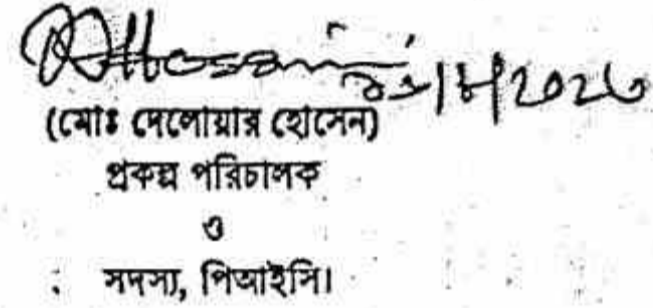 Hossain
(মোঃ দেলোয়ার হোসেন)
প্রকল্প পরিচালক
ও
সদস্য, পিআইসি।